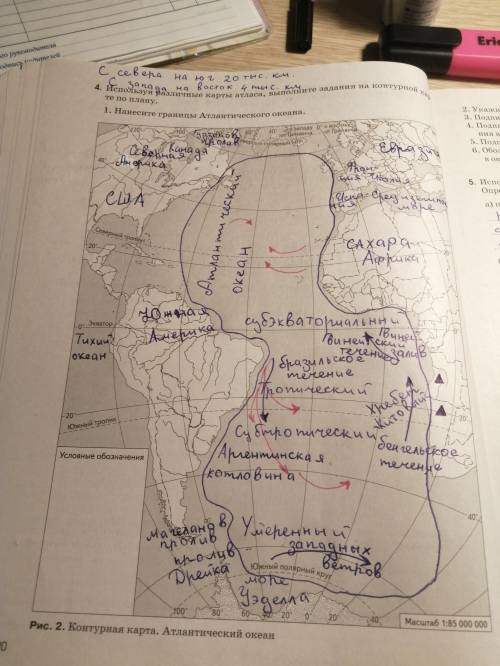 С севера на юг 20 тыс. км.
С запада на восток 4 тыс. км
4. Используя различные карты атласа, выполните задания на контурной
те по плану.
1. Нанесите границы Атлантического океана.
2. Укажи
3. Подпи
5. Подп
6. Обоз
5. Испо
Опре
а) п
Eric
руководителя
Северная
Америка
Канада
пролив
Евразия
США
Атлантический
океан
море
САХАРА
Африка
Северный тропик
20°
20°
Южная
Америка
Экватор
0°
0°
Тихий
океан
субэкваториальнии
Гвинейский
течение
залив
бразильское
течение
Тропический
хребет
Китовый
20°
20°
Южный тропик
Субтропический
бенгельское
течение
Аргентинская
котловина
Условные обозначения
40°
Магеланов
пролив
пролив
Дрейка
Умеренный
западных
ветров
Южный полярный круг
море
Уэделла
100°
80°
60°
40°
20°
0°
20°
40°
Масштаб 1:85 000 000
Рис. 2. Контурная карта. Атлантический океан